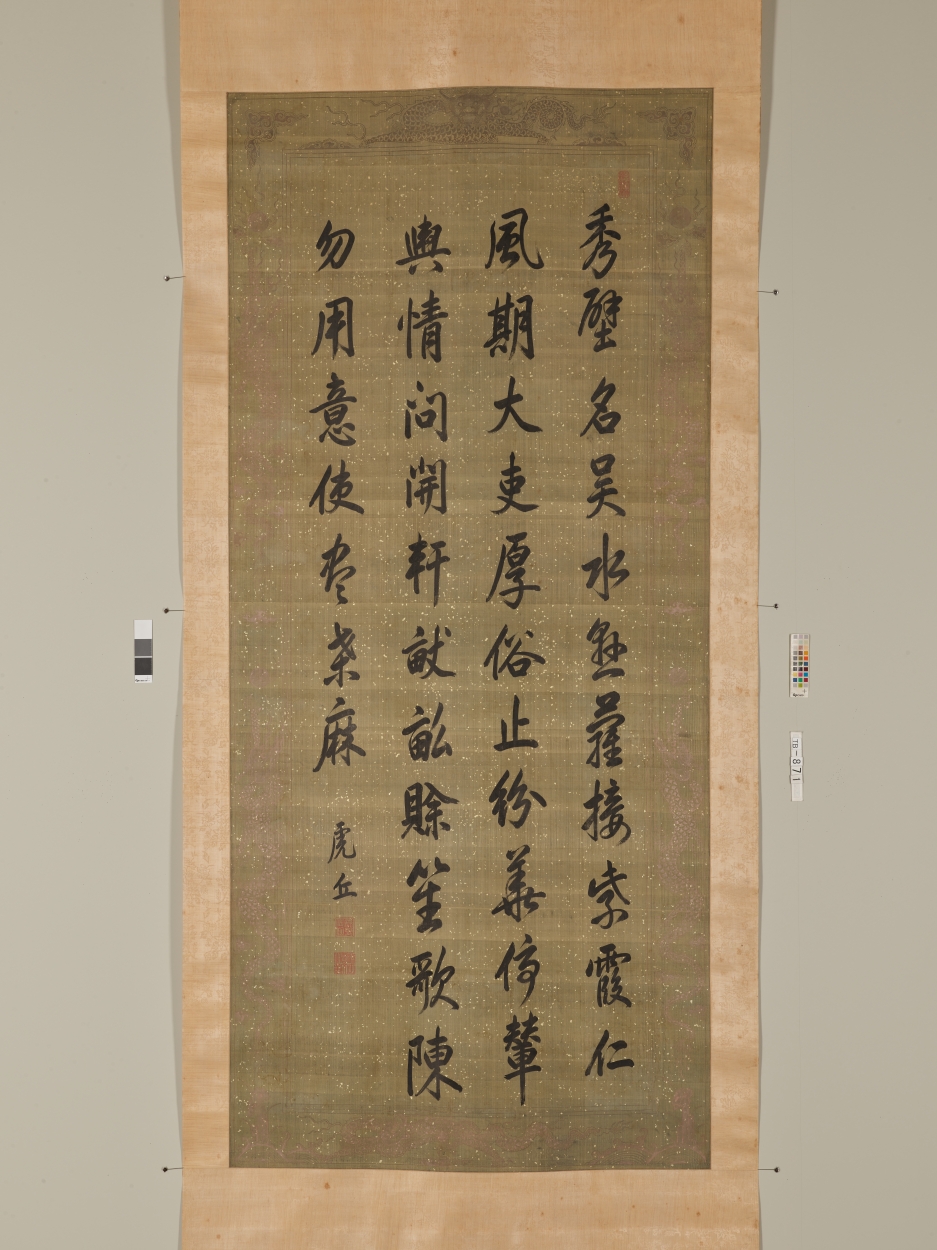 秀壁名吴水垂蘿接紫霞仁
風期大吏厚俗止紛華停輦
輿情問開軒畎畝賖笙歌陳
勿用意使尽桑麻
虎丘
TB-871